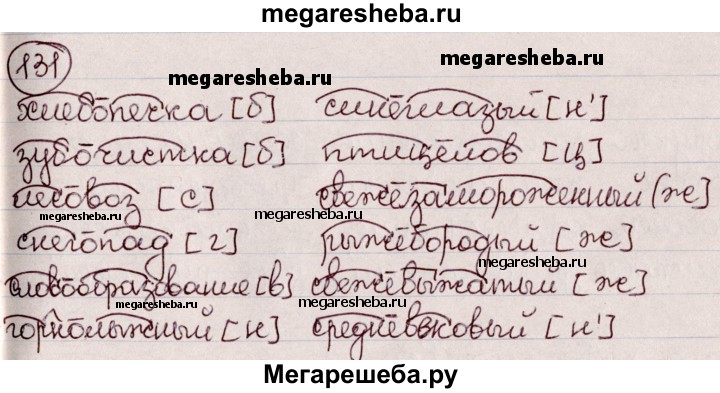 megaresheba.ru
131
megaresheba.ru
megaresheba.ru
хлебопечка [б] синеглазый [н']
зубочистка [б] птицелов [ц]
лесовоз [с] свежезамороженный [ж]
megaresheba.ru
megaresheba.ru
снегопад [г] рыжебородый [ж]
словообразование [в] свежевыжатый [ж]
megaresheba.ru
megaresheba.ru
горнолыжный [н] средневековый [н']
Мегарешеба.ру